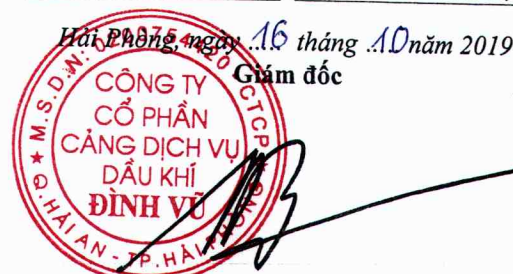 Hải Phòng, ngày .16 tháng .10 năm 2019
Giám đốc
M.S.D.N: C.T.C.P
CÔNG TY
CỔ PHẦN
CẢNG DỊCH VỤ
DẦU KHÍ
ĐÌNH VŨ
Q. HẢI AN - TP. HẢI PHÒNG